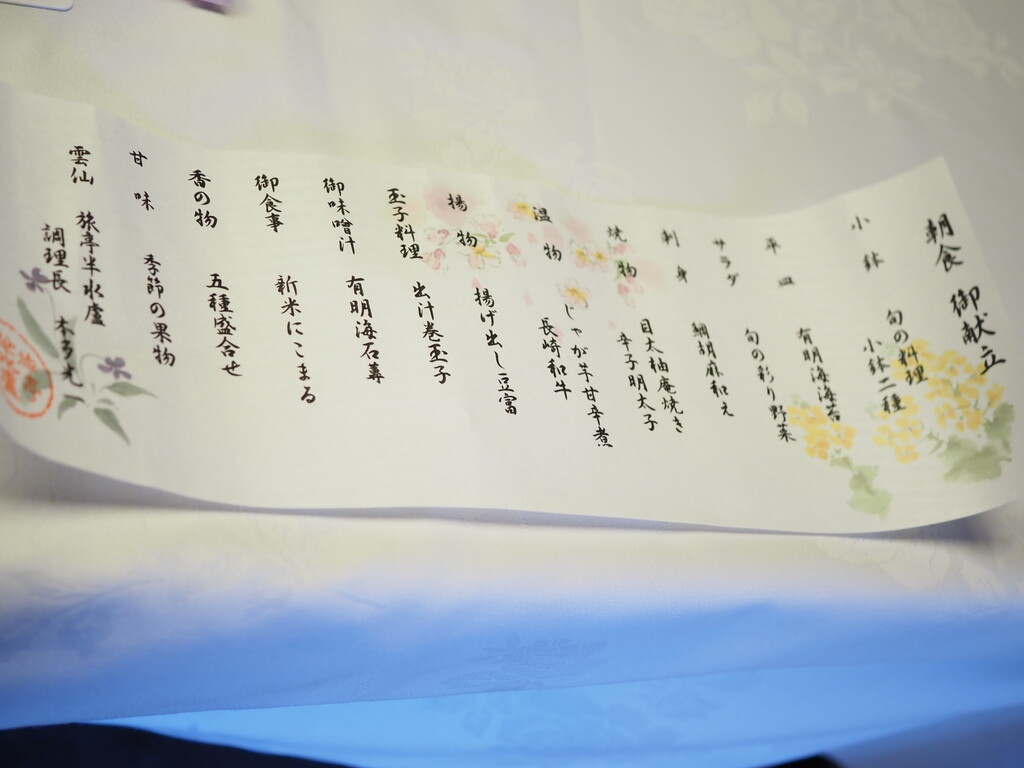 朝食 御献立
小鉢 旬の料理
小鉢二種
平皿 有明海海苔
旬の彩り野菜
サラダ
刺身 鯛胡麻和え
焼物 目太柚庵焼き
辛子明太子
温物 じゃが芋甘辛煮
長崎和牛
揚物 揚げ出し豆富
玉子料理 出汁巻玉子
御味噌汁 有明海石蓴
御食事 新米にこまる
香の物 五種盛合せ
甘味 季節の果物
雲仙 旅亭半水盧
調理長 本多光一